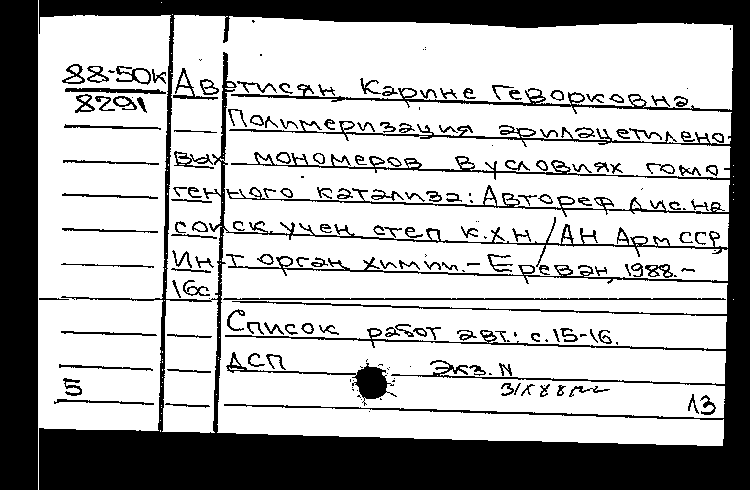 88-50К Аветисян, Карине Геворковна.
8291
Полимеризация арилацетилено-
вых мономеров в условиях гомо-
генного катализа: Автореф дис. на
соиск. учен степ к.х.н. / АН Арм ССР,
Ин-т орган химии. - Ереван, 1988. -
16с
Список работ авт.: с. 15-16.
ДСП Экз. N
5
13